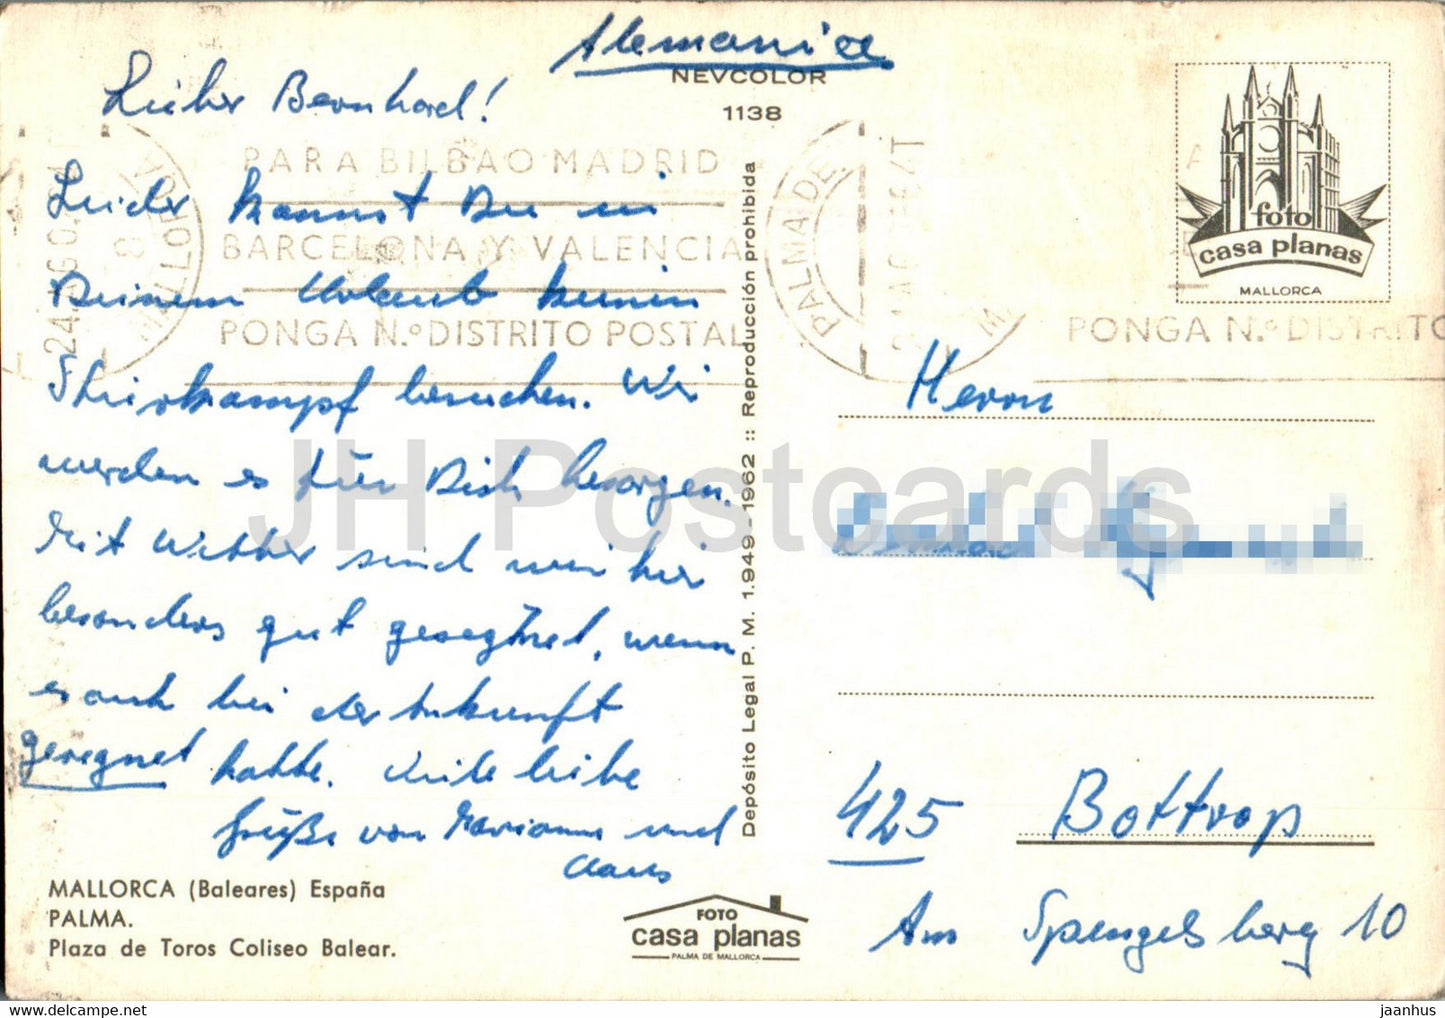 Alemania
NEVCOLOR
1138
Lieber Bernhard!
Leider kannst Du in
Deinem Urlaub keinen
Stierkampf besuchen. Wir
werden es für Dich besorgen.
Mit Wetter sind wir hier
besonders gut gesegnet, wenn
es auch bei der Ankunft
geregnet hatte. Viele liebe
Grüße von Marianne und
Claus
MALLORCA (Baleares) España
PALMA.
Plaza de Toros Coliseo Balear.
PARA BILBAO MADRID
BARCELONA Y VALENCIA
PONGA N.º DISTRITO POSTAL
PALMA DE
MALLORCA
PONGA N.º DISTRITO
Depósito Legal P. M. 1.949-1962 :: Reproducción prohibida
foto
casa planas
MALLORCA
Herrn
425 Bottrop
Am Spengelsberg 10
FOTO
casa planas
PALMA DE MALLORCA
JH Postcards
https://jhpostcards.com
jaanhus